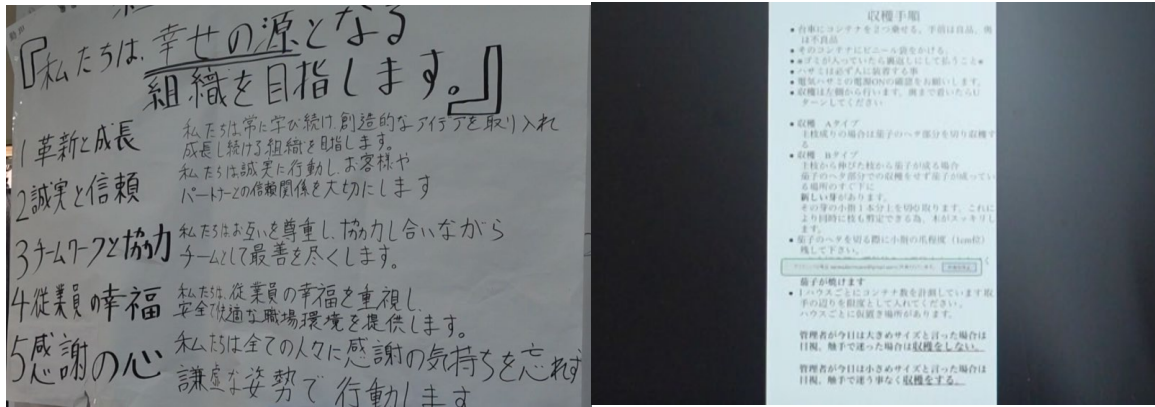 『私たちは、幸せの源となる
組織を目指します。』
1 革新と成長
私たちは常に学び続け、創造的なアイデアを取り入れ
成長し続ける組織を目指します。
2 誠実と信頼
私たちは誠実に行動し、お客様や
パートナーとの信頼関係を大切にします
3 チームワークと協力
私たちはお互いを尊重し、協力し合いながら
チームとして最善を尽くします。
4 従業員の幸福
私たちは、従業員の幸福を重視し、
安全で快適な職場環境を提供します。
5 感謝の心
私たちは全ての人々に感謝の気持ちを忘れず
謙虚な姿勢で行動します
収穫手順
● 台車にコンテナを2つ乗せる。手前は良品、奥
は不良品
● そのコンテナにビニール袋をかける。
● ※ゴミが入っていたら裏返しにして払うこと※
● ハサミは必ず人に装着する事
● 電気ハサミの電源ONの確認をお願いします。
● 収穫は左側から行います。奥まで着いたらU
ターンしてください
● 収穫 Aタイプ
主枝成りの場合は茄子のヘタ部分を切り収穫す
る
● 収穫 Bタイプ
主枝から伸びた枝から茄子が成る場合
茄子のヘタ部分での収穫をせず茄子が成ってい
る場所のすぐ下に
新しい芽があります。
その芽の小指1本分上を切り取ります。これに
より同時に枝も剪定できる為、木がスッキリし
ます。
● 茄子のヘタを切る際に小指の爪程度（1cm位）
残して下さい。
茄子が焼けます
● 1ハウスごとにコンテナ数を計測しています取
手の辺りを限度として入れてください。
ハウスごとに仮置き場所があります。
管理者が今日は大きめサイズと言った場合は
目視、触手で迷った場合は収穫をしない。
管理者が今日は小さめサイズと言った場合は
目視、触手で迷う事なく収穫をする。